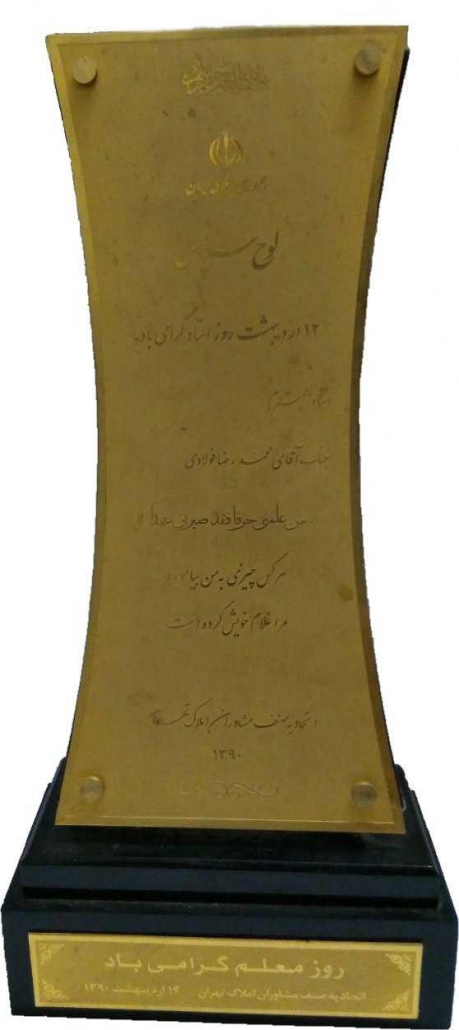 بسم الله الرحمن الرحیم
جمهوری اسلامی ایران
لوح سپاس
۱۲ اردیبهشت روز استاد گرامی باد
استاد محترم
جناب آقای محمد رضا فولادی
من علمنی حرفا فقد صیرنی عبدا
هر کس چیزی به من بیاموزد
مرا غلام خویش کرده است
اتحادیه صنف مشاوران املاک تهران
۱۳۹۰
روز معلم گرامی باد
اتحادیه صنف مشاوران املاک تهران ۱۲ اردیبهشت ۱۳۹۰